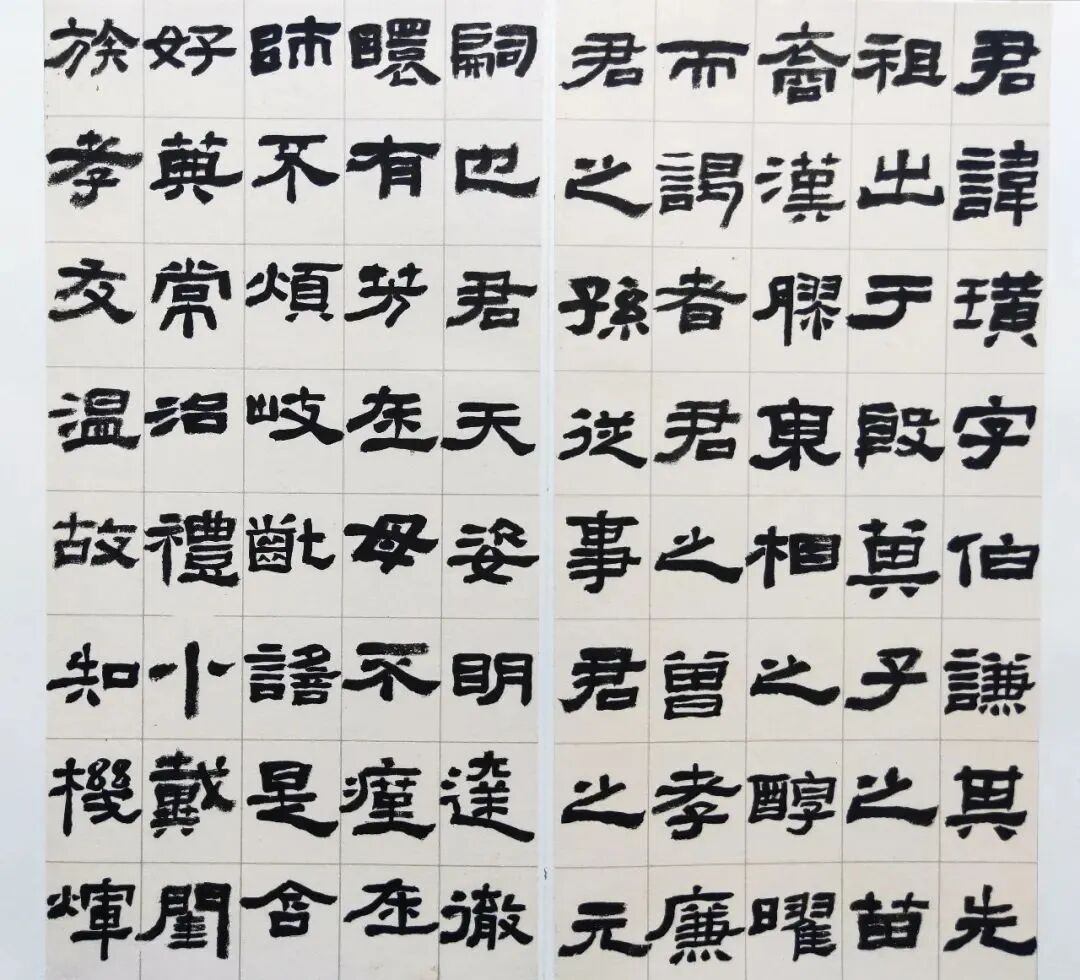 君諱璜字伯謙其先
祖出于殷箕子之苗
裔漢膠東相之醇曜
而謁者君之曾孝廉
君之孫從事君之元
嗣也君天姿明達徹
有芳在母不瘽在
師不煩岐齔謠是含
好典常治禮小戴閨
族孝友温故知機煇